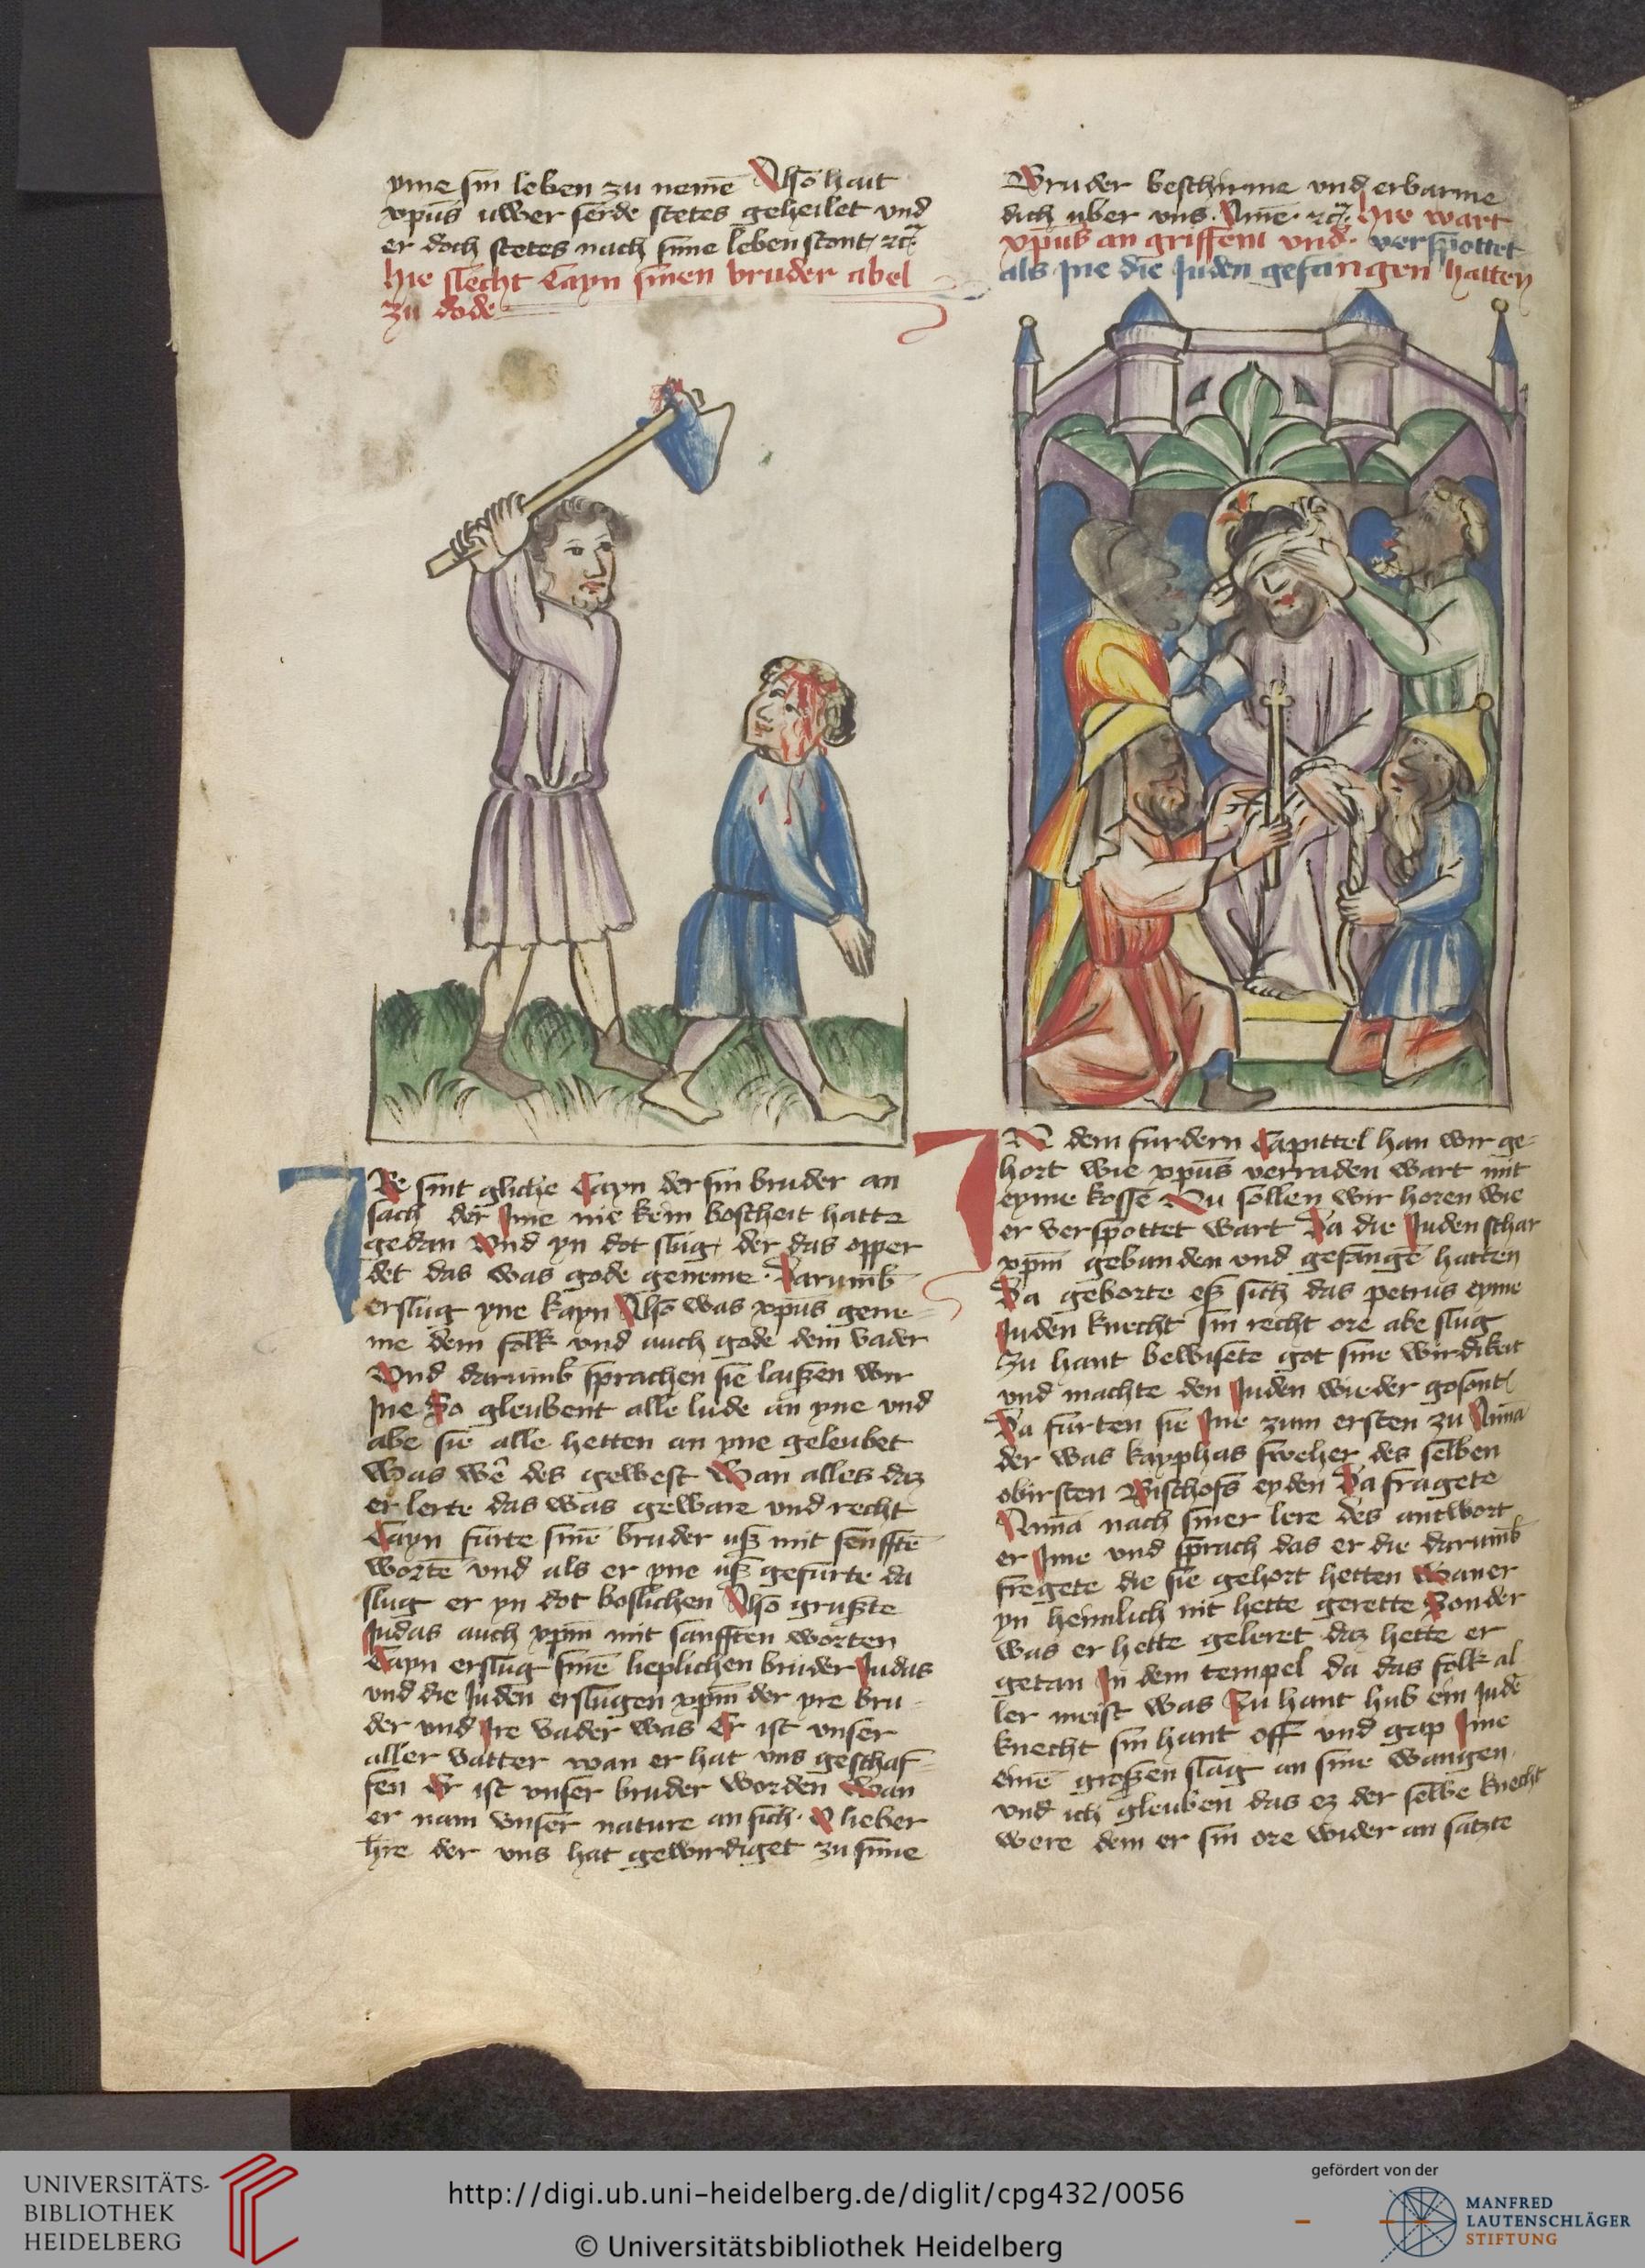 yme sin leben zu nemē Also hait
xpūs uwer serde stetes geheilet vnd
er doch stetes nach sime leben stont
hie slecht Cayn sinen bruder abel
zu dode
Ir sint gliche Cayn der sin bruder an
sach der Ime nie kein boscheit hatte
gedan Vnd yn dot slug der das opper
det das was gode geneme Darumb
erslug yne kayn Also was xpūs gene-
me dem folk vnd auch gode dem vader
Vnd darumb sprachen sie laißen wir
Ine So gleubent alle lude an yne vnd
abe sie alle hetten an yne geleubet
Was wē des gewest Wan alles daz
er lerte das was geware vnd recht
Cayn furte sinē bruder uß mit senfftē
wortē vnd als er yne uß gefurte da
slug er yn dot boslichen Also grußte
Judas auch xpm̄ mit sanfften worten
Cayn erslug sinē lieplichen bruder Judas
vnd die Juden erslugen xpm̄ der yre bru-
der vnd Ire vader was Er ist vnser
aller vatter wan er hat vns geschaf-
fen Er ist vnser bruder worden Wan
er nam vnser nature an sich O lieber
hre der vns hat gewirdiget zu sime
Bruder beschirme vnd erbarme
dich uber vns Amē hie wart
xpūs an griffent vnd verspottet
als Ine die Juden gefangen hatten
IN dem furdern Capittel han wir ge-
hort wie xpūs verraden wart mit
eyme kosse Nu sollen wir horen wie
er verspottet wart Da die Juden schar
xpm̄ gebunden vnd gefangē hatten
Da geborte eß sich das petrus eyme
Juden knecht sin recht ore abe slug
Zu hant bewisete got sine wirdikeit
vnd machte den Juden wieder gesont
Da furten sie Ine zum ersten zu Anna
der was kayphas sweher des selben
obirsten Bischofs eyden Da fragete
Anna nach siner lere des antwort
er Ime vnd sprach das er die darumb
fregete die sie gehort hetten Waner
yn heimlich nit hette gerette Sonder
was er hette geleret daz hette er
getan In dem tempel da das folk al
ler meist was Zu hant hub ein Jude
knecht sin hant off vnd gap Ime
einē großen slag an sine wangen
vnd ich gleuben das ez der selbe knecht
were dem er sin ore wider an satzte
UNIVERSITÄTS-
BIBLIOTHEK
HEIDELBERG
http://digi.ub.uni-heidelberg.de/diglit/cpg432/0056
© Universitätsbibliothek Heidelberg
gefördert von der
MANFRED
LAUTENSCHLÄGER
STIFTUNG